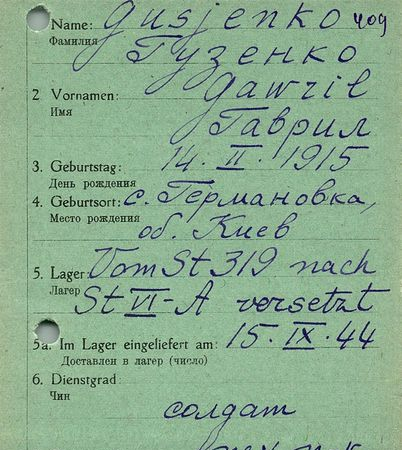 Name: Gusjenko 409
Фамилия Гузенко
2. Vornamen: Gawril
Имя
Гаврил
3. Geburtstag: 14. II. 1915
День рождения
4. Geburtsort: с. Германовка,
Место рождения об. Киев
5. Lager: Vom St 319 nach
Лагер St VI-A versetzt
5a. Im Lager eingeliefert am: 15. IX. 44
Доставлен в лагер (число)
6. Dienstgrad:
Чин
солдат